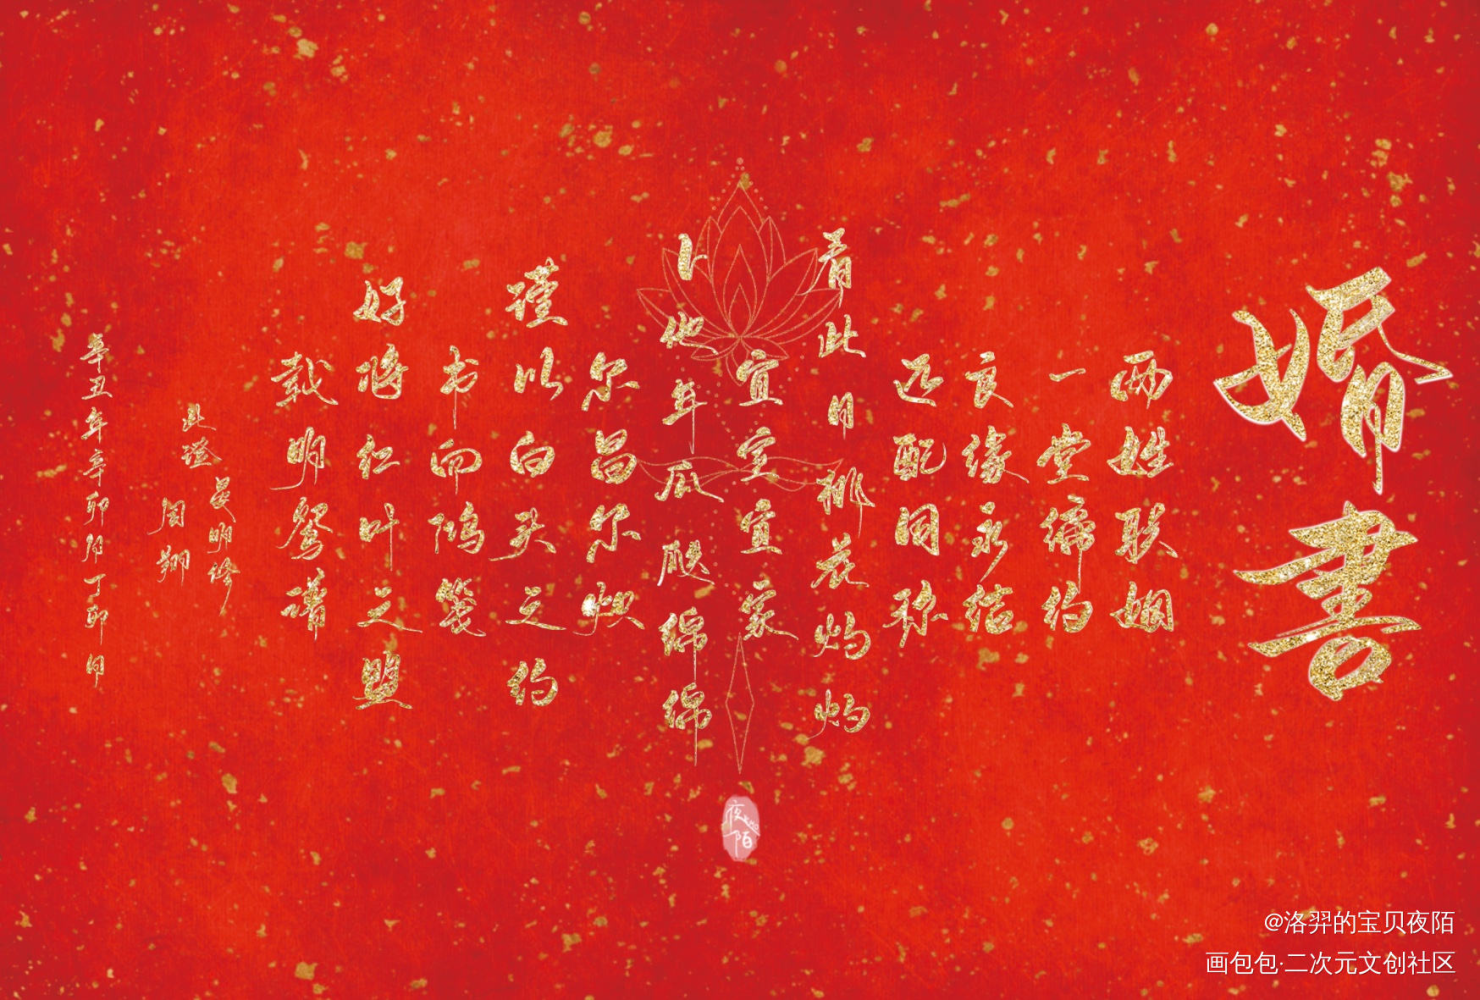 婚書
两姓联姻
一堂缔约
良缘永结
匹配同称
看此日桃花灼灼
宜室宜家
卜他年瓜瓞绵绵
尔昌尔炽
谨以白头之约
书向鸿笺
好将红叶之盟
载明鸳谱
晏明修
此證
阎翀
辛丑年辛卯月丁卯日
夜陌
@洛羿的宝贝夜陌
画包包·二次元文创社区